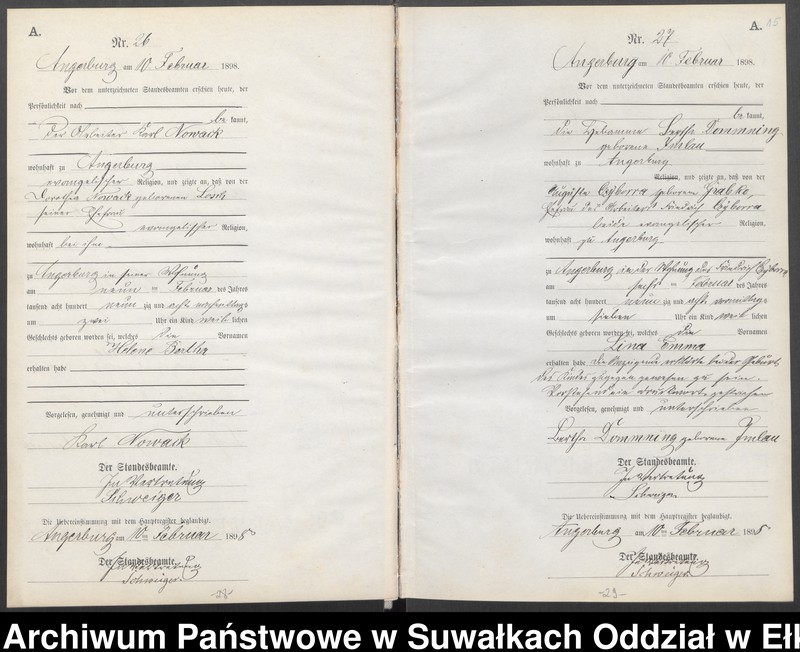 A.
Nr. 26
Angerburg am 10. Februar 1898.
Vor dem unterzeichneten Standesbeamten erschien heute, der
Persönlichkeit nach
be kannt,
Der Arbeiter Karl Nowack
wohnhaft zu Angerburg
evangelischer Religion, und zeigte an, daß von der
Dorothea Nowack geborenen
seiner Ehefrau
evangelischer Religion,
wohnhaft bei ihm
zu Angerburg in seiner Wohnung
am neun ten Februar des Jahres
tausend acht hundert neun zig und acht vormittags
um zwei Uhr ein Kind weib lichen
Geschlechts geboren worden sei, welches die Vornamen
Helene Bertha
erhalten habe
Vorgelesen, genehmigt und unterschrieben
Karl Nowack
Der Standesbeamte.
In Vertretung
Schweiger
Die Uebereinstimmung mit dem Hauptregister beglaubigt.
Angerburg am 10ten Februar 1898
Der Standesbeamte.
In Vertretung
Schweiger
-28-
A.
15
Nr. 27
Angerburg am 10. Februar 1898.
Vor dem unterzeichneten Standesbeamten erschien heute, der
Persönlichkeit nach
be kannt,
Die Hebamme Bertha Dommning
geborene Imlau
wohnhaft zu Angerburg
Religion, und zeigte an, daß von der
Auguste Czyborra geborene Grabko,
Ehefrau des Arbeiters Friedrich Czyborra
beide evangelischer Religion,
wohnhaft zu Angerburg
zu Angerburg in der Wohnung des Friedrich Czyborra
am sechs ten Februar des Jahres
tausend acht hundert neun zig und acht vormittags
um sieben Uhr ein Kind weib lichen
Geschlechts geboren worden sei, welches die Vornamen
Lina Emma
erhalten habe die Anzeigende erklärte bei der Geburt
des Kindes zugegen gewesen zu sein.
Vorstehend ein Druckwort gestrichen
Vorgelesen, genehmigt und unterschrieben
Bertha Dommning geborene Imlau
Der Standesbeamte.
In Vertretung
Schweiger
Die Uebereinstimmung mit dem Hauptregister beglaubigt.
Angerburg am 10ten Februar 1898
Der Standesbeamte.
In Vertretung
Schweiger
-29-
Archiwum Państwowe w Suwałkach Oddział w Ełk